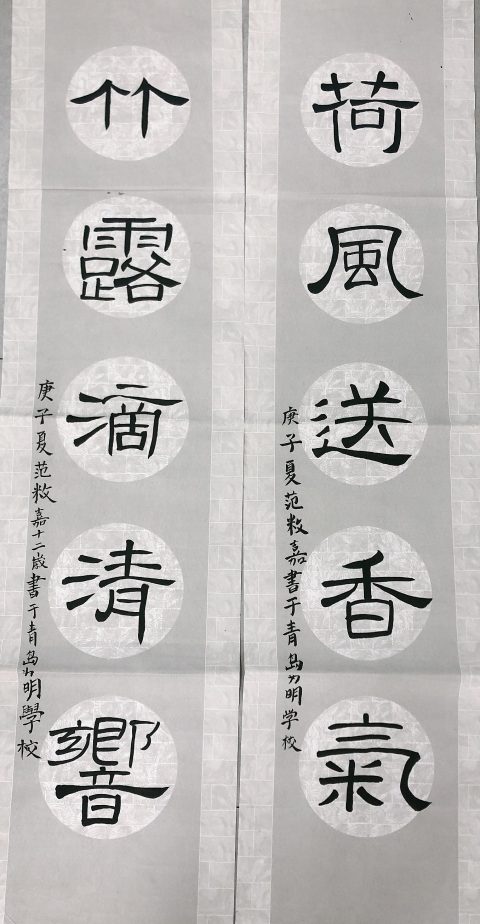 荷風送香氣
庚子夏范敉嘉書于青島力明学校
竹露滴清響
庚子夏范敉嘉十二歲書于青島力明學校